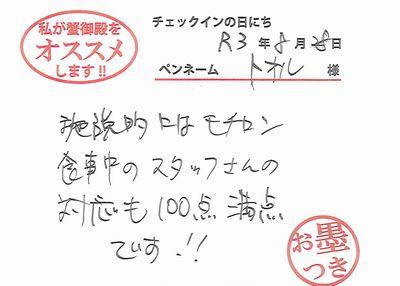 私が蟹御殿を
オススメ
します!!
チェックインの日にち
R3年8月28日
ペンネーム トガレ 様
施設的にはモチロン
食事中のスタッフさんの
対応も100点満点
です!!
お墨
つき